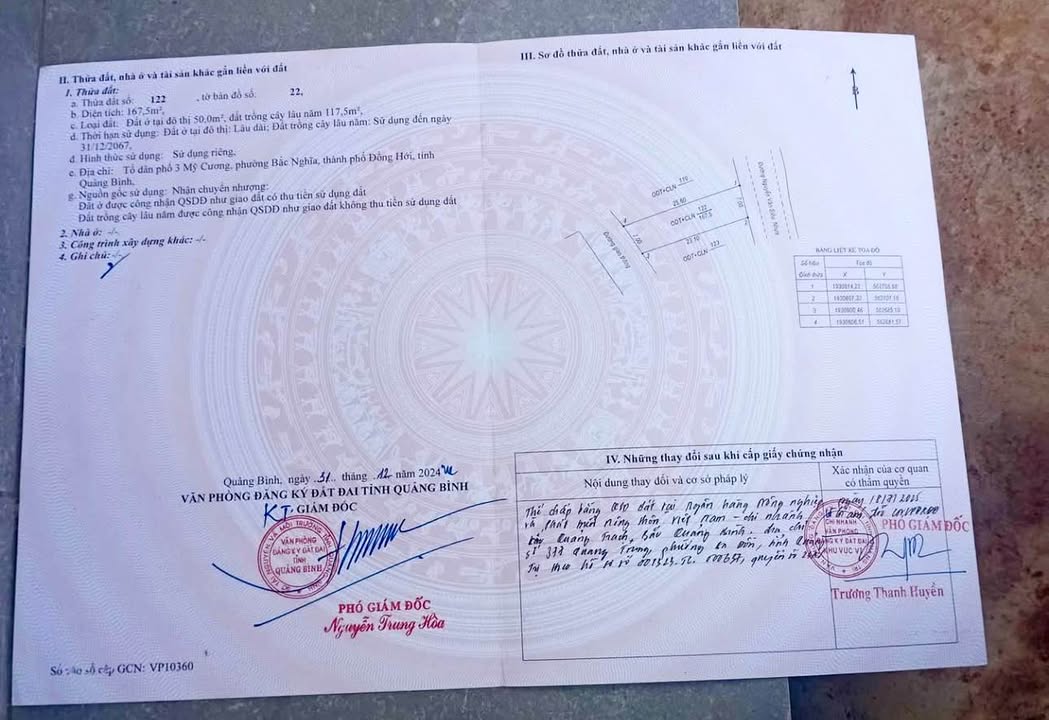 II. Thửa đất, nhà ở và tài sản khác gắn liền với đất
1. Thửa đất:
a. Thửa đất số: 122 , tờ bản đồ số: 22,
b. Diện tích: 167,5m²,
c. Loại đất: Đất ở tại đô thị 50,0m², đất trồng cây lâu năm 117,5m²,
d. Thời hạn sử dụng: Đất ở tại đô thị: Lâu dài; Đất trồng cây lâu năm: Sử dụng đến ngày
31/12/2067,
đ. Hình thức sử dụng: Sử dụng riêng,
e. Địa chỉ: Tổ dân phố 3 Mỹ Cương, phường Bắc Nghĩa, thành phố Đồng Hới, tỉnh
Quảng Bình,
g. Nguồn gốc sử dụng: Nhận chuyển nhượng:
Đất ở được công nhận QSDĐ như giao đất có thu tiền sử dụng đất
Đất trồng cây lâu năm được công nhận QSDĐ như giao đất không thu tiền sử dụng đất
2. Nhà ở: -/-
3. Công trình xây dựng khác: -/-
4. Ghi chú: -/-
Quảng Bình, ngày 31 tháng 12 năm 2024
VĂN PHÒNG ĐĂNG KÝ ĐẤT ĐAI TỈNH QUẢNG BÌNH
KT. GIÁM ĐỐC
VĂN PHÒNG
ĐĂNG KÝ ĐẤT ĐAI
TỈNH
QUẢNG BÌNH
PHÓ GIÁM ĐỐC
Nguyễn Trung Hòa
Số vào sổ cấp GCN: VP10360
III. Sơ đồ thửa đất, nhà ở và tài sản khác gắn liền với đất
ODT+CLN
25.60
1
7.00
ODT+CLN 122
167.5
4
7.00
3
2
ODT+CLN 123
Đường giao thông
BẢNG LIỆT KÊ TỌA ĐỘ
Số hiệu đỉnh thửa Tọa độ
X Y
1
2
3
4
IV. Những thay đổi sau khi cấp giấy chứng nhận
Nội dung thay đổi và cơ sở pháp lý
Xác nhận của cơ quan
có thẩm quyền
Thế chấp bằng đất tại Ngân hàng Nông nghiệp
và Phát triển nông thôn Việt Nam - chi nhánh
Quảng Trạch, Bắc Quảng Bình, địa chỉ
số Quang Trung, phường Ba Đồn, tỉnh Quảng
Trị theo hồ sơ số
ngày
CHI NHÁNH
VĂN PHÒNG
ĐĂNG KÝ ĐẤT ĐAI
KHU VỰC
PHÓ GIÁM ĐỐC
Trương Thanh Huyền